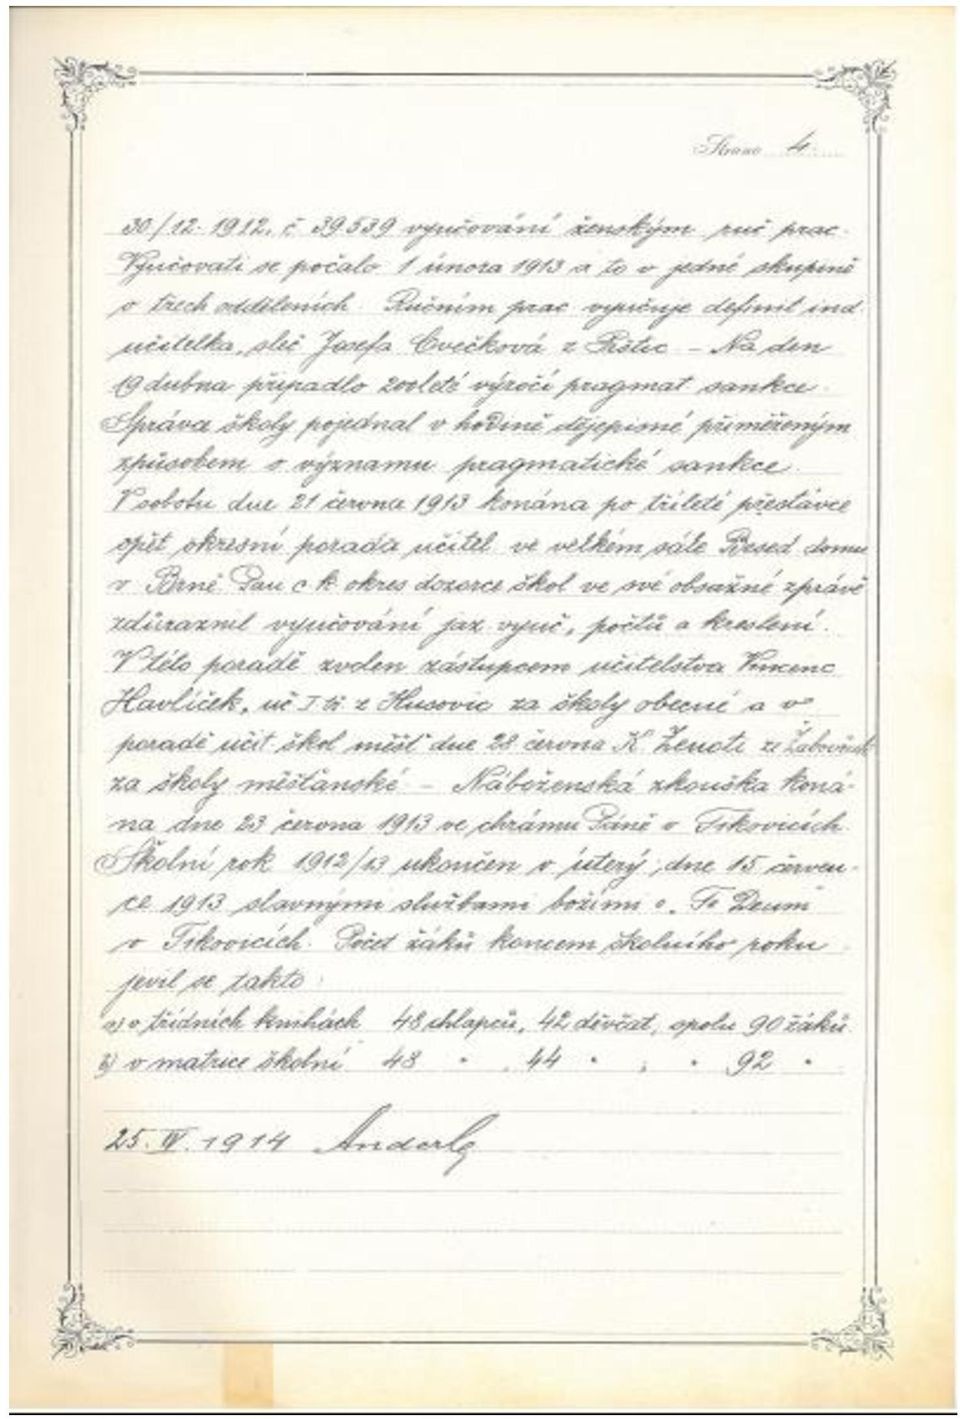 Strana 4.
30/12. 1912. č 39.539 vyučování ženským ruč prac.
Vyučovati se počalo 1 února 1913 a to v jedné skupině
o třech odděleních. Ručním prac vyučuje definit ind.
učitelka, sleč Josefa Cvečková z – Na den
19 dubna připadlo 200leté výročí pragmat sankce.
Správa školy pojednal v hodině dějepisné přiměřeným
způsobem o významu pragmatické sankce.
V sobotu dne 21 června 1913 konána po tříleté přestávce
opět okresní porada učitel ve velkém sále Besed domu
v Brně. Pan c k okres dozorce škol ve své obsažné zprávě
zdůraznil vyučování jaz vyuč, počtů a kreslení.
V této poradě zvolen zástupcem učitelstva Vincenc
Havlíček, uč I tř z Husovic za školy obecné a v
poradě učit škol měšť dne 28 června K ze
za školy měšťanské – Náboženská zkouška koná-
na dne 23 června 1913 ve chrámu Páně v
Školní rok 1912/13 ukončen v úterý, dne 15 červen-
ce 1913 slavnými službami božími o „Te Deum"
v Počet žáků koncem školního roku
jevil se takto:
a) v třídních knihách 48 chlapců, 42 děvčat, spolu 90 žáků
b) v matrice školní 48 " , 44 " , " 92 "
25. IV. 1914 Anderle